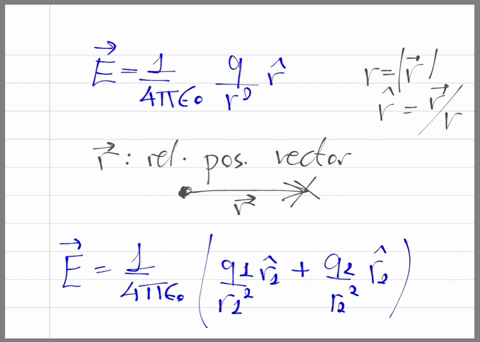 E⃗ = 1/4πϵ₀ q/r² r̂
r = |r⃗|
r̂ = r⃗/r
r⃗: rel. pos. vector
r⃗
E⃗ = 1/4πϵ₀ (q1/r1² r̂1 + q2/r2² r̂2)